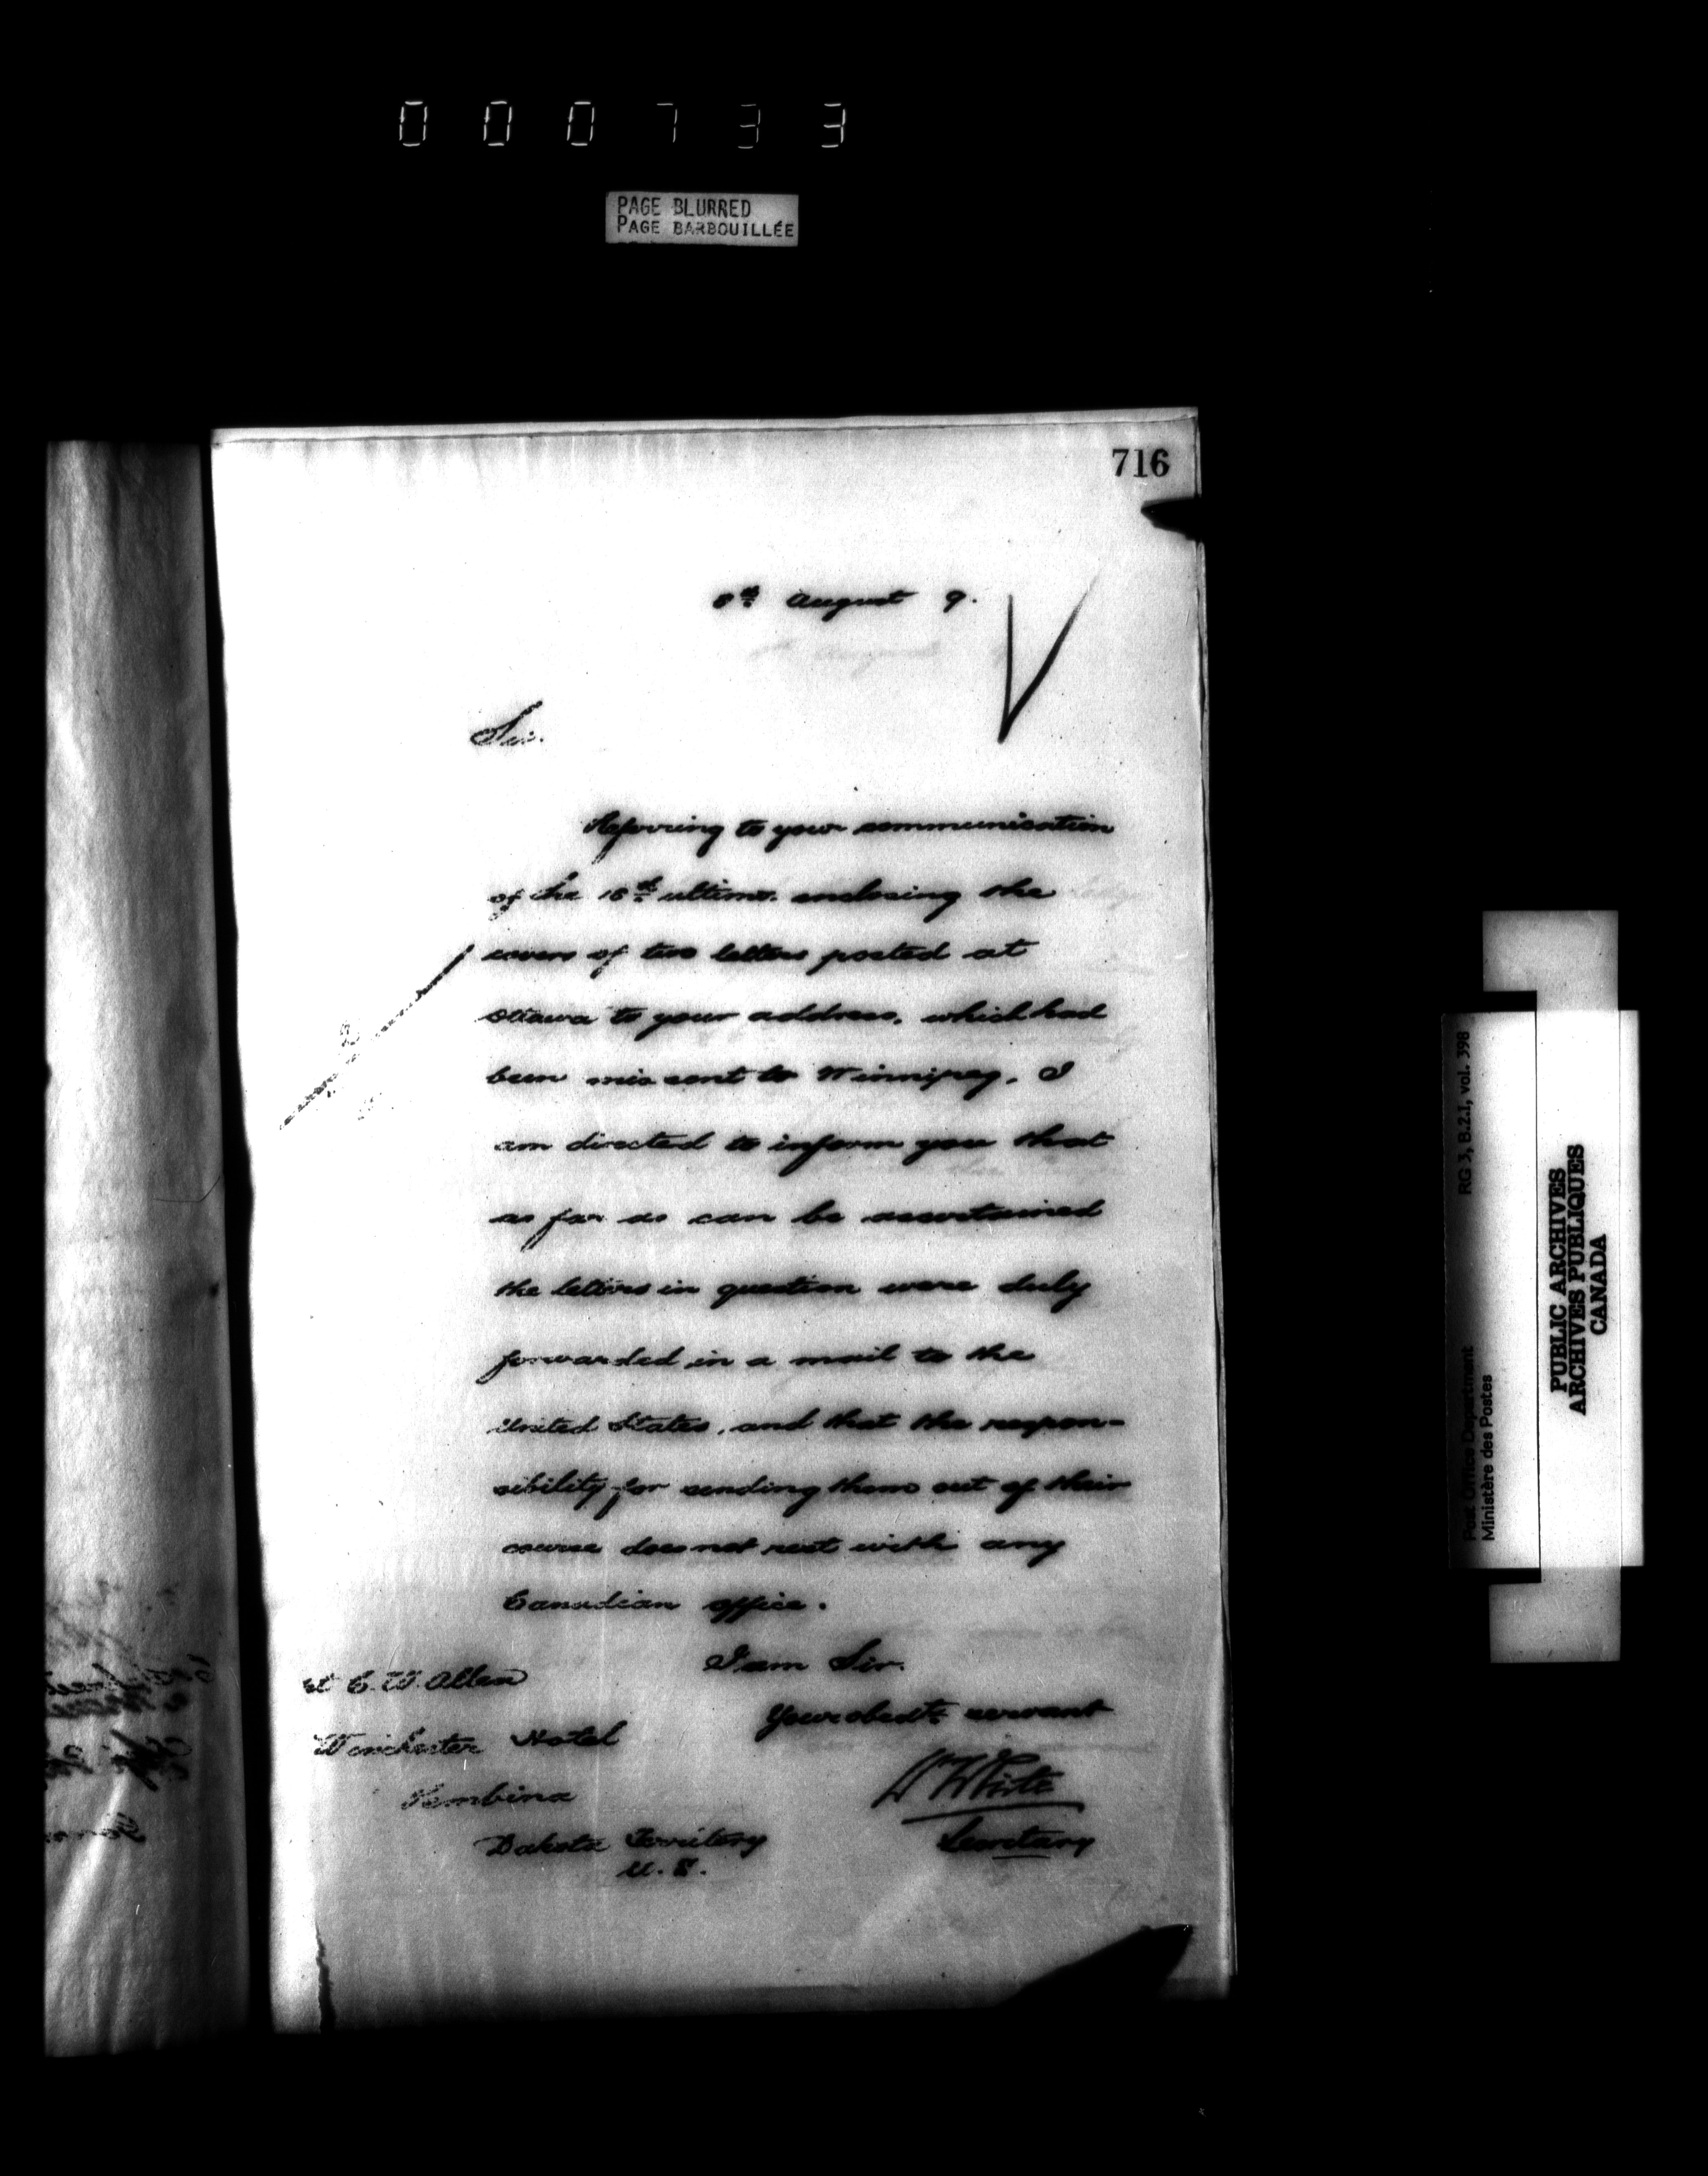 000733
PAGE BLURRED
PAGE BARBOUILLÉE
716
8th August 9.
Sir.
Referring to your communication
of the 18th ultimo. enclosing the
covers of two letters posted at
Ottawa to your address, which had
been mis sent to Winnipeg, I
am directed to inform you that
as far as can be ascertained
the letters in question were duly
forwarded in a mail to the
United States, and that the respon-
sibility for sending them out of their
course does not rest with any
Canadian office.
I am Sir.
Your obedt. servant
W White
Secretary
C. W. Allen
Winchester Hotel
Pembina
Dakota Territory
U. S.
Post Office Department RG 3, B.2.1, vol. 398
Ministère des Postes
PUBLIC ARCHIVES
ARCHIVES PUBLIQUES
CANADA